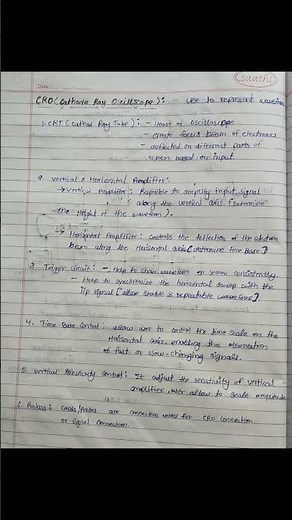 Saathi
Date
CRO (Cathode Ray Oscilloscope) : Use to represent waveform
1. CRT (Cathod Ray Tube) : - Heart of Oscilloscope
- create focus beam of electrons
- deflected on different parts of
screen based on input
2 Vertical & Horizontal Amplifier :
→ Vertical Amplifier : to amplify input signal
along the vertical axis. (determine
the height of the waveform).
Horizontal Amplifier : controls the deflection of the electron
beam along the Horizontal axis (determine time base)
3 Trigger Circuit : - Help to show waveform on screen consistently.
- Help to synchronize the horizontal sweep with the
i/p signal (allow stable & repeatable waveforms)
4. Time Base Control : allow user to control the time scale on the
Horizontal axis. enabling the observation
of fast or slow-changing signals.
5. Vertical Sensitivity Control : It adjust the sensitivity of vertical
amplifier. user allow to scale
6. Probes : Cords/Probes are connecting for CRO connection
or signal connection.